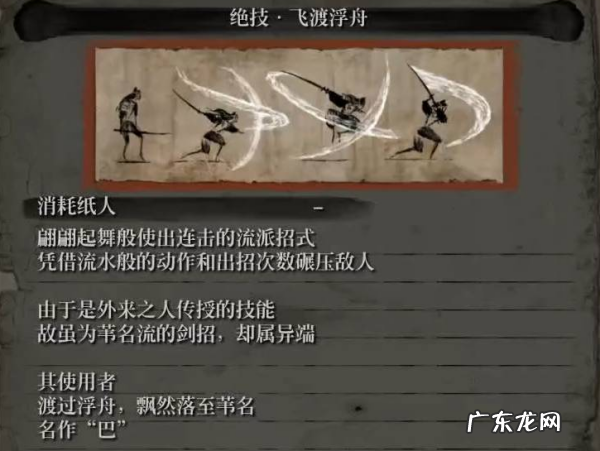 绝技·飞渡浮舟
消耗纸人 –
翩翩起舞般使出连击的流派招式
凭借流水般的动作和出招次数碾压敌人
由于是外来之人传授的技能
故虽为苇名流的剑招，却属异端
其使用者
渡过浮舟，飘然落至苇名
名作“巴”
广东龙网